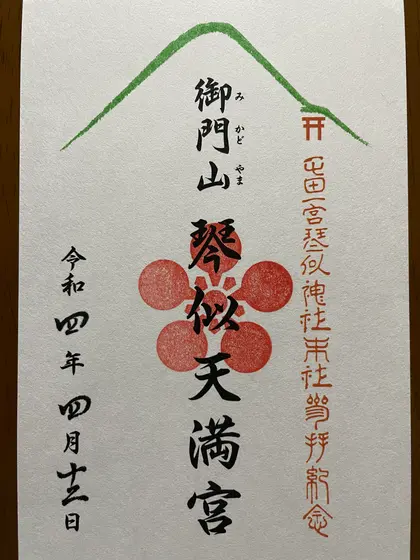 屯田一宮琴似神社末社参拝紀念
御門山 琴似天満宮
みかどやま
令和四年四月十三日